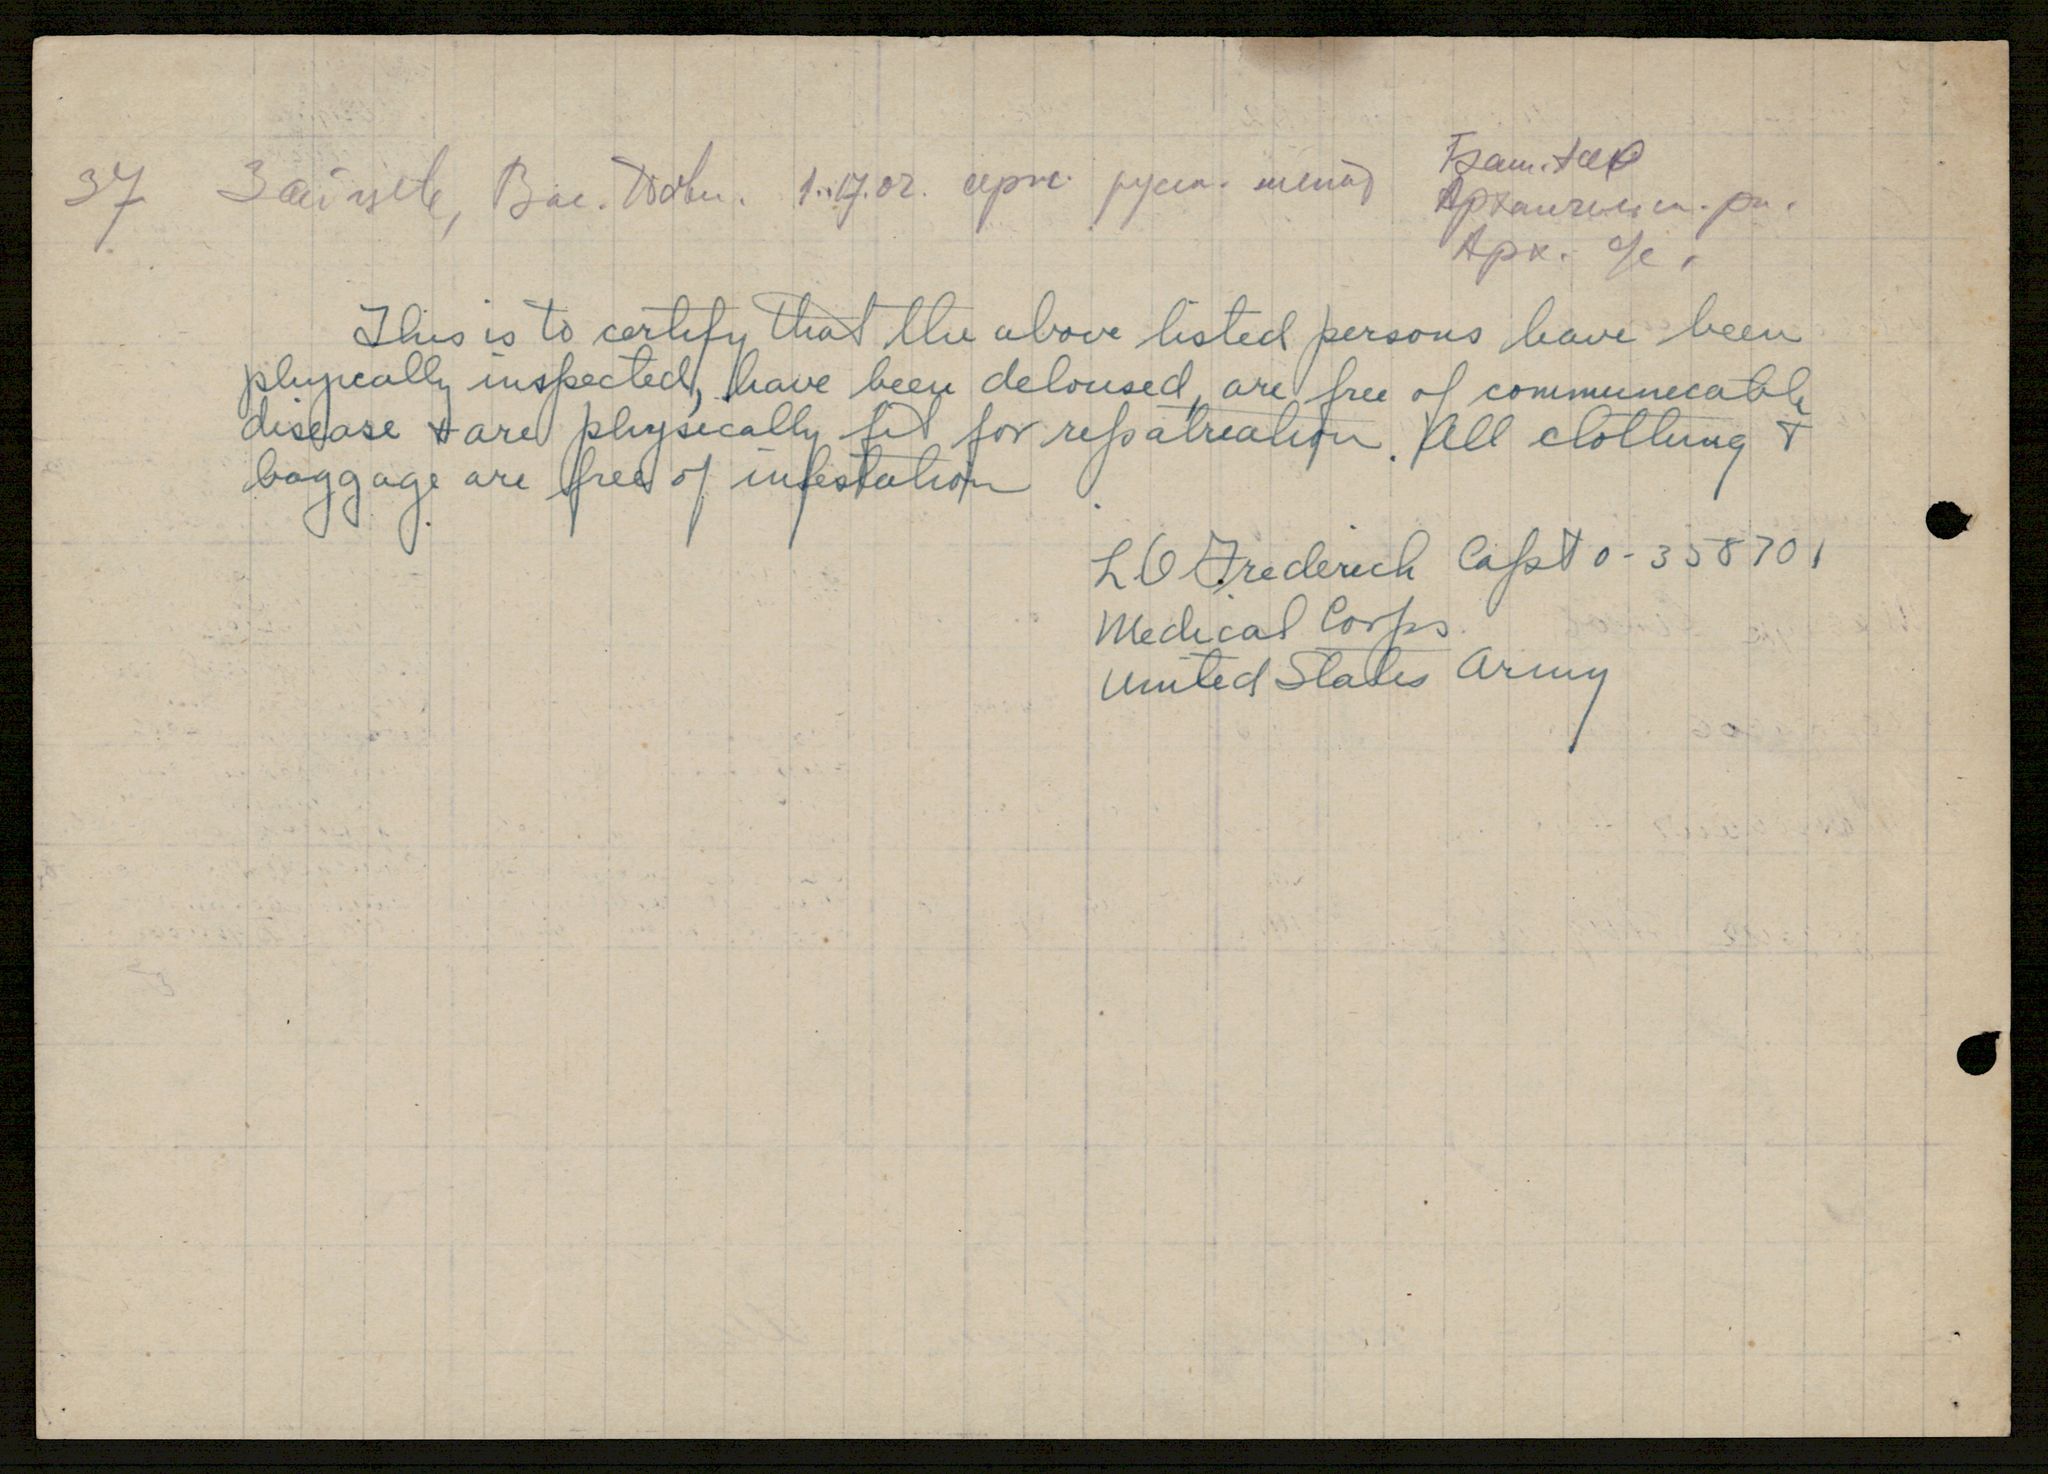 37 Зайцев, Вас. 1.17.02. русск.
Архангельск. рн.
Арх. о/с.
This is to certify that the above listed persons have been
physically inspected, have been deloused, are free of communicable
disease & are physically fit for repatriation. All clothing &
baggage are free of infestation
L O Frederich Capt O-358701
Medical Corps
United States Army